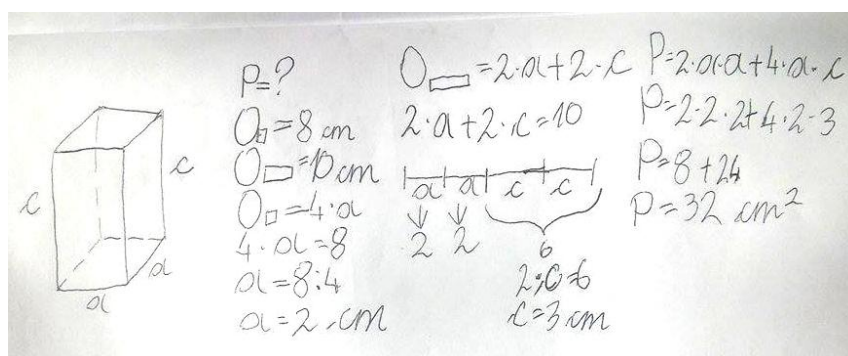 c
c
a
a
P=?
O□=8 cm
O▭=10 cm
O□=4·a
4·a=8
a=8:4
a=2 cm
O▭=2·a+2·c
2·a+2·c=10
a a c c
2 2 6
2·c=6
c=3 cm
P=2·a·a+4·a·c
P=2·2·2+4·2·3
P=8+24
P=32 cm²